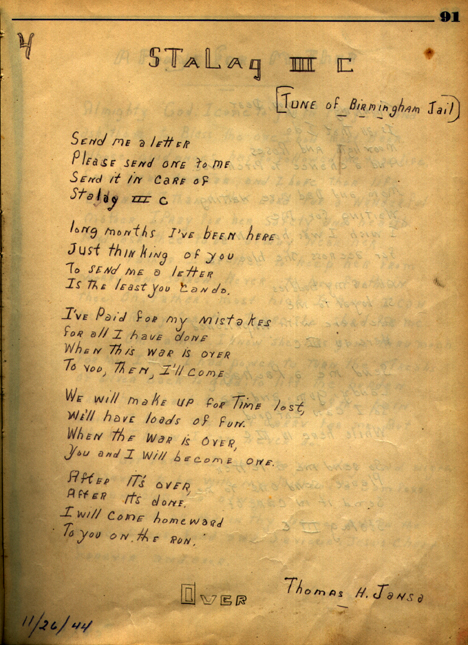 91
4
STALAG III C
[TUNE OF BIRMINGHAM JAIL]
SEND ME A LETTER
PLEASE SEND ONE TO ME
SEND IT IN CARE OF
STALAG III C
LONG MONTHS I'VE BEEN HERE
JUST THINKING OF YOU
TO SEND ME A LETTER
IS THE LEAST YOU CAN DO.
I'VE PAID FOR MY MISTAKES
FOR ALL I HAVE DONE
WHEN THIS WAR IS OVER
TO YOU, THEN, I'LL COME
WE WILL MAKE UP FOR TIME LOST,
WILL HAVE LOADS OF FUN.
WHEN THE WAR IS OVER,
YOU AND I WILL BECOME ONE.
AFTER IT'S OVER,
AFTER ITS DONE.
I WILL COME HOMEWARD
TO YOU ON THE RUN.
OVER
THOMAS H. JANSA
11/26/44